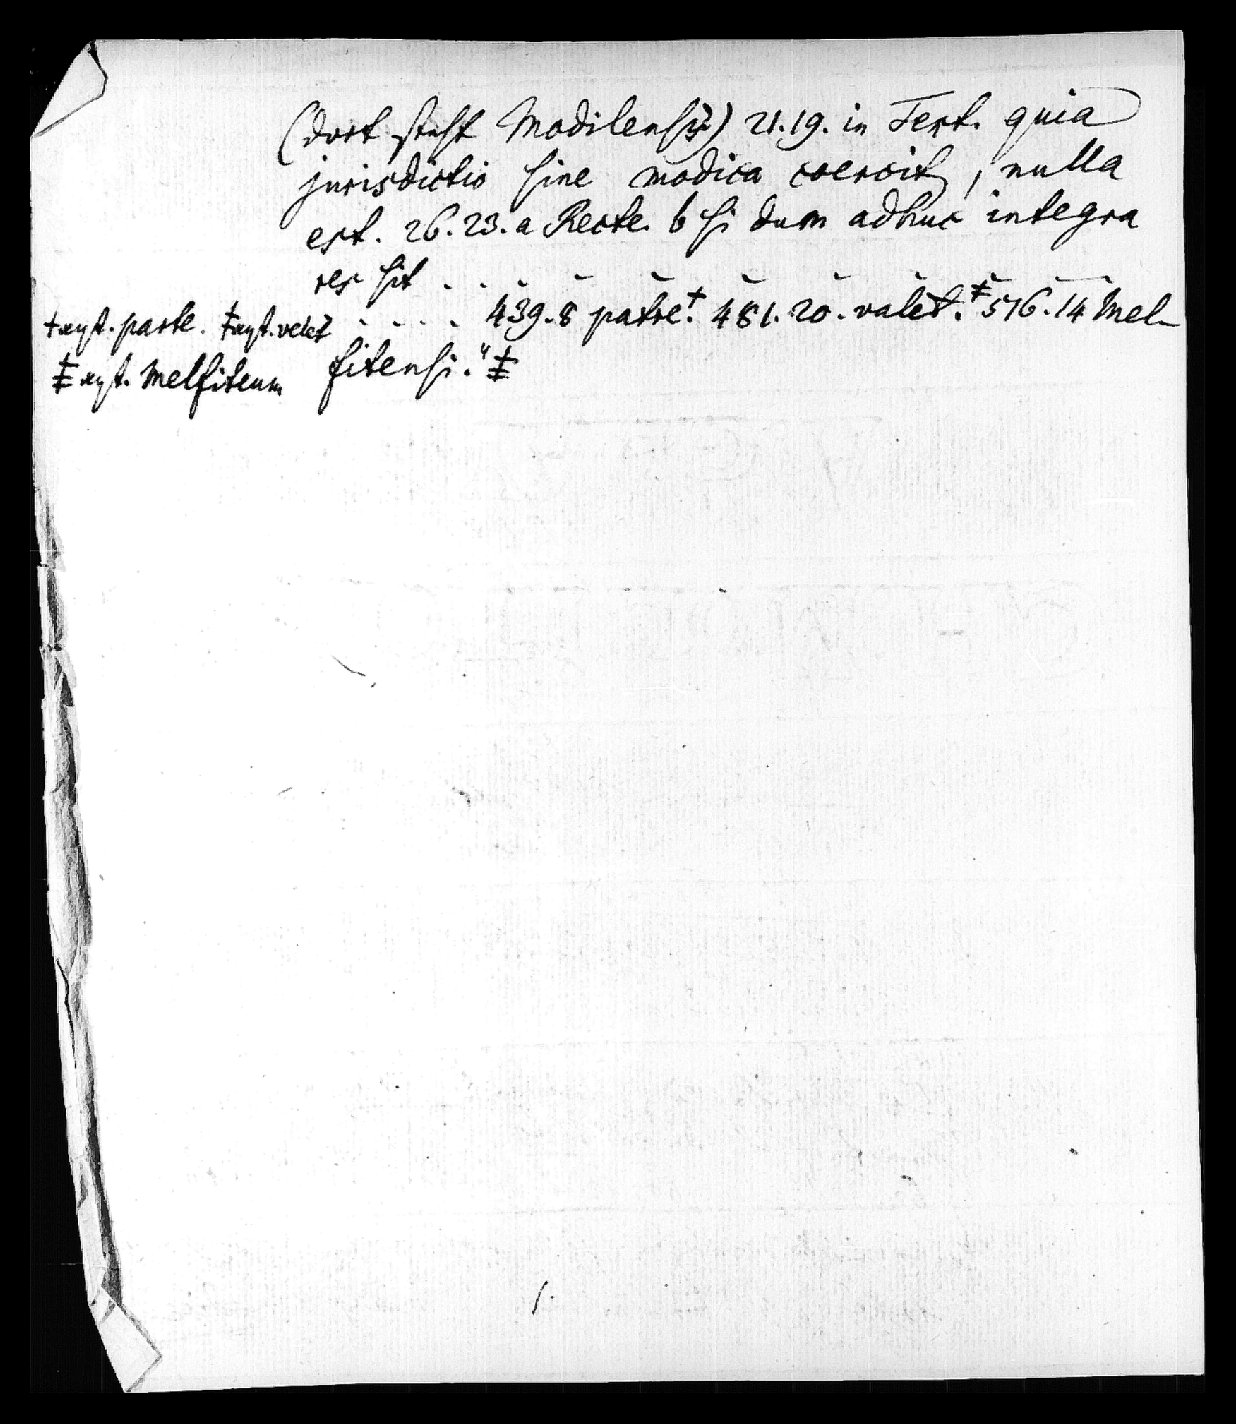 (dort steht Modilensis) 21.19. in Text. quia
jurisdictio sine modica coercit, nulla
est. 26.23. a Recte. b si dum adhuc integra
res sit . . - - - - - - - -
. . . . 439.8 patre.† 481.20. valet.‡ 516.14 Mel-
fitensi."
† parte. ‡ velet
Melfiteum